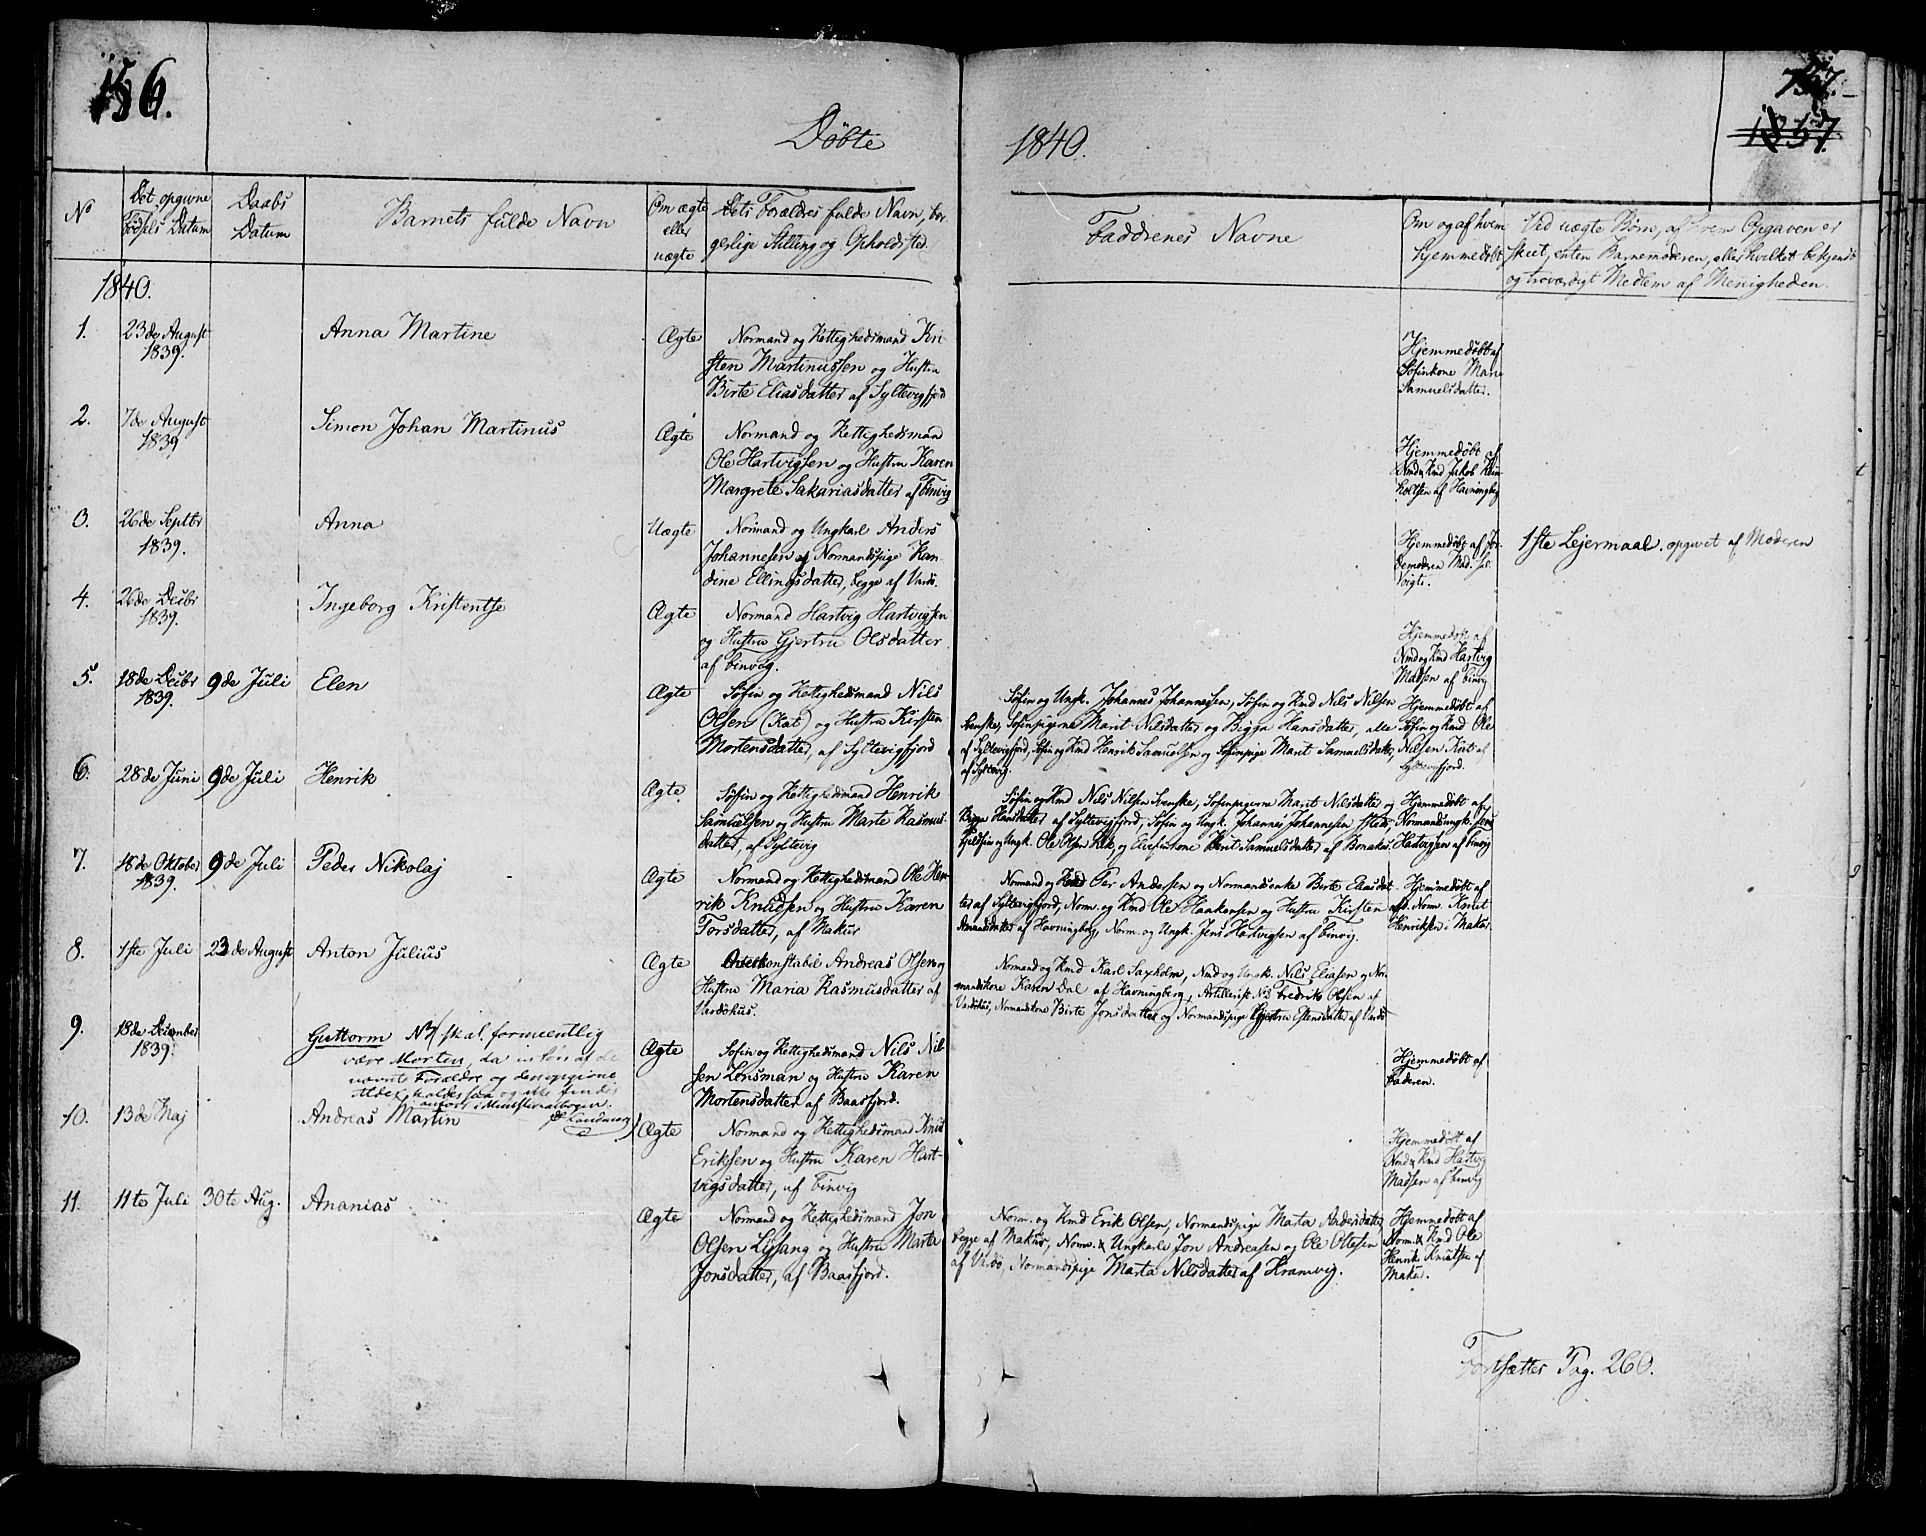 156.
157.
1857.
Döbte
1840.
No
Det opgivne
Födsels Datum
Daabs
Datum
Barnets fulde Navn
Om ægte
eller
uægte
Dets Forældres fulde Navn, bor-
gerlige Stilling og Opholdsted.
Faddrenes Navne
Om og af hvem
hjemmedöbt
Ved uægte Börn, af hvem Opgaven er
skeet, enten Barnemoderen, eller hvilket bekjendt
og troværdigt Medlem af Menigheden.
1840.
1.
23de August
1839.
Anna Martine
Ægte
Normand og Rettighedsmand Kri-
sten Martinussen og Hustru
Birte Eliasdatter af Syltevigfjord
Hjemmedöbt af
Söfinkone Marit
Samuelsdatter.
2.
7de August
1839
Simon Johan Martinus
Ægte
Normand og Rettighedsman
Ole Hartvigsen og Hustru Karen
Margrete Sakariasdatter af Finvig
Hjemmedöbt af
Nmd Rmd Jakob
af Havningberg
3.
26de Septbr
1839.
Anna
Uægte
Normand og Ungkarl Anders
Johannesen og Normandspige Han-
dine Ellingsdatter, begge af Vardö.
Hjemmedöbt af Jor-
demoderen Mad.
Voigt.
1ste Lejermaal. opgivet af Moderen
4.
26de Decbr
1839.
Ingeborg Kristentse
Ægte
Normand Hartvig Hartvigsen
og Hustru Gjertru Olsdatter
af Finvig.
Hjemmedöbt af
Nmd og Rmd Hartvig
Madsen af Finvig
5.
18de Decbr
1839.
9de Juli
Elen
Ægte
Söfin og Rettighedsmand Nils
Olsen (Kat) og Hustru Kirsten
Mortensdatter, af Syltevigfjord
Söfin og Ungk. Johannes Johannesen, Söfin og Rmd Nils Nilsen
Svenske, Söfinpigerne Marit Nilsdatter og Bigga Hansdatter, alle
af Syltevigfjord, Söfin og Rmd Henrik Samuelsen og Söfinpige Marit Samuelsdatter,
af Syltevig.
Hjemmedöbt af
Söfin og Rmd Ole
Nilsen Kat af
Syltevigfjord.
6.
28de Juni
9de Juli
Henrik
Ægte.
Söfin og Rettighedsmand Henrik
Samuelsen og Hustru Marte Rasmus-
datter, af Syltevig
Söfin og Rmd Nils Nilsen Svenske, Söfinpigerne Marit Nilsdatter og
Bigga Hansdatter af Syltevigfjord, Söfin og Ungk. Johannes Johannesen
Fjeldfin og Ungk. Ole Olsen og Elvefinkone Berit Samuelsdatter af Bonakas.
Hjemmedöbt af
Normandsungk. Jens
Hartvigsen af Finvig
7.
18de Oktober
1839.
9de Juli
Peder Nikolaj
Ægte
Normand og Rettighedsmand Ole Hen-
rik Knudsen og Hustru Karen
Torsdatter, af Makur
Normand og Rmd Per Andersen og Normandsenke Birte Eliasdat-
ter af Syltevigfjord, Norm. og Rmd Ole Haakensen og Hustru Kirsten
Amundsdatter af Havningberg, Norm. og Ungk. Jens Hartvigsen af Finvig.
Hjemmedöbt af
Norm. Knut
Henriksen i Makur.
8.
1ste Juli
23de August
Anton Julius
Ægte
Overkonstabel Andreas Olsen og
Hustru Maria Rasmusdatter af
Vardöhus.
Normand og Rmd Karl Saxholm, Nmd og Ungk. Nils Eliasen og Nor-
mandskone Karen Dal af Havningberg, Artillerist No 3 Fredrik Olsen af
Vardöhus, Normandskone Birte Jonsdatter og Normandspige Gjertru Estensdatter af Vardö
9.
18de December
1839.
Guttorm NB/ skal formeentlig
være Morten, da
nævnte Forældre og den opgivne
Alder
anfört i Ministerialbogen.
Ægte
Söfin og Rettighedsmand Nils Nil-
sen Lensman og Hustru Karen
Mortensdatter af Baasfjord.
Hjemmedöbt af
Faderen.
10.
13de Maj
Andreas Martin
Ægte
Normand og Rettighedsmand Knut
Eriksen og Hustru Karen Hart-
vigsdatter, af Finvig
Hjemmedöbt af
Nmd & Rmd Hartvig
Madsen af Finvig
11.
11te Juli
30te Aug.
Ananias
Ægte
Normand og Rettighedsmand Jon
Olsen Lysang og Hustru Marta
Jonsdatter, af Baasfjord.
Norm. og Rmd Erik Olsen, Normandspige Marta Andersdatter
begge af Makur, Norm. & Ungkarle Jon Andreasen og Ole Ottesen
af Vardö, Normandspige Marta Nilsdatter af Kramvig.
Hjemmedöbt af
Norm. & Rmd Ole
Henrik Knutsen af
Makur.
Fortsættes Pag. 260.